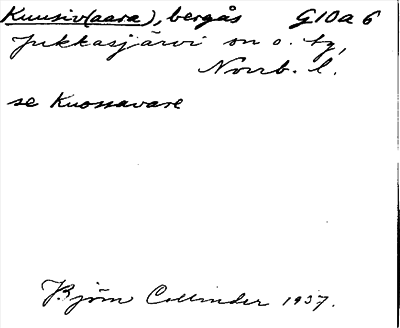 Kuusiv(aara), bergås G10a6
Jukkasjärvi sn o. tg,
Norrb. l.
se Kuossavare
Björn Collinder 1937.